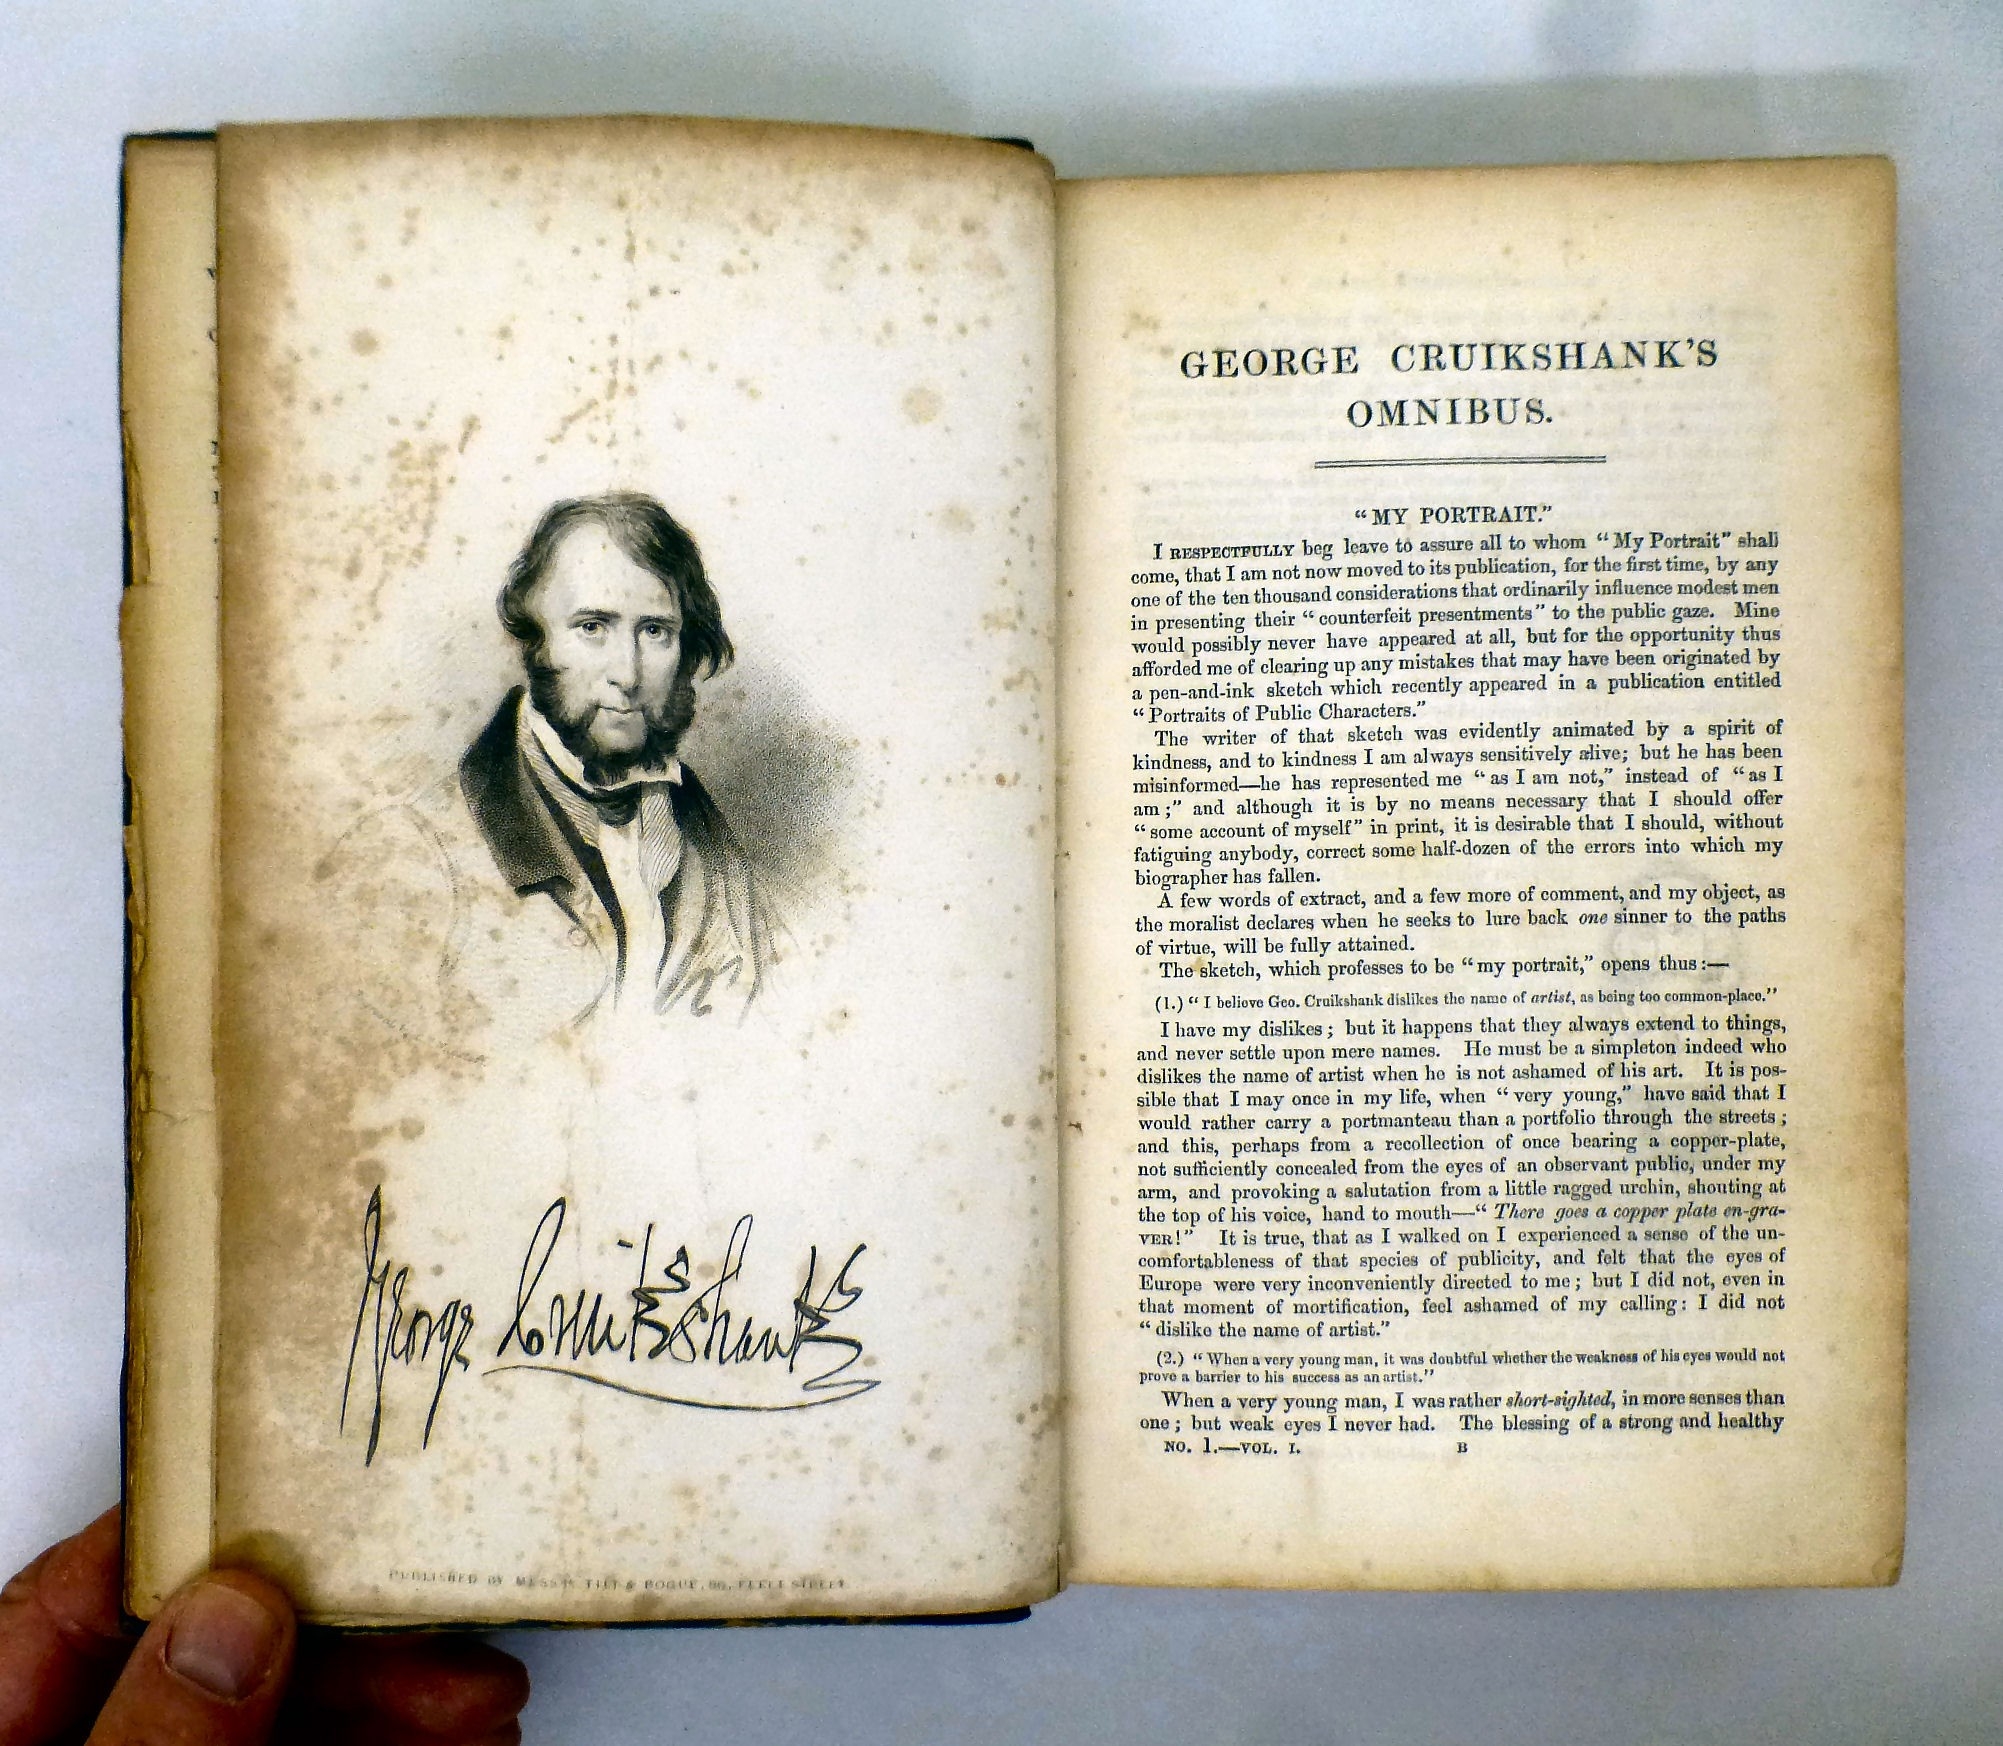 George Cruikshank
PUBLISHED BY MESSRS TILT & BOGUE, 86, FLEET STREET
GEORGE CRUIKSHANK'S
OMNIBUS.
“MY PORTRAIT.”
I RESPECTFULLY beg leave to assure all to whom “My Portrait” shall
come, that I am not now moved to its publication, for the first time, by any
one of the ten thousand considerations that ordinarily influence modest men
in presenting their “counterfeit presentments” to the public gaze. Mine
would possibly never have appeared at all, but for the opportunity thus
afforded me of clearing up any mistakes that may have been originated by
a pen-and-ink sketch which recently appeared in a publication entitled
“Portraits of Public Characters.”
The writer of that sketch was evidently animated by a spirit of
kindness, and to kindness I am always sensitively alive; but he has been
misinformed—he has represented me “as I am not,” instead of “as I
am;” and although it is by no means necessary that I should offer
“some account of myself” in print, it is desirable that I should, without
fatiguing anybody, correct some half-dozen of the errors into which my
biographer has fallen.
A few words of extract, and a few more of comment, and my object, as
the moralist declares when he seeks to lure back one sinner to the paths
of virtue, will be fully attained.
The sketch, which professes to be “my portrait,” opens thus:—
(1.) “I believe Geo. Cruikshank dislikes the name of artist, as being too common-place.”
I have my dislikes; but it happens that they always extend to things,
and never settle upon mere names. He must be a simpleton indeed who
dislikes the name of artist when he is not ashamed of his art. It is pos-
sible that I may once in my life, when “very young,” have said that I
would rather carry a portmanteau than a portfolio through the streets;
and this, perhaps from a recollection of once bearing a copper-plate,
not sufficiently concealed from the eyes of an observant public, under my
arm, and provoking a salutation from a little ragged urchin, shouting at
the top of his voice, hand to mouth—“There goes a copper plate en-gra-
VER!” It is true, that as I walked on I experienced a sense of the un-
comfortableness of that species of publicity, and felt that the eyes of
Europe were very inconveniently directed to me; but I did not, even in
that moment of mortification, feel ashamed of my calling: I did not
“dislike the name of artist.”
(2.) “When a very young man, it was doubtful whether the weakness of his eyes would not
prove a barrier to his success as an artist.”
When a very young man, I was rather short-sighted, in more senses than
one; but weak eyes I never had. The blessing of a strong and healthy
NO. 1.—VOL. I. B